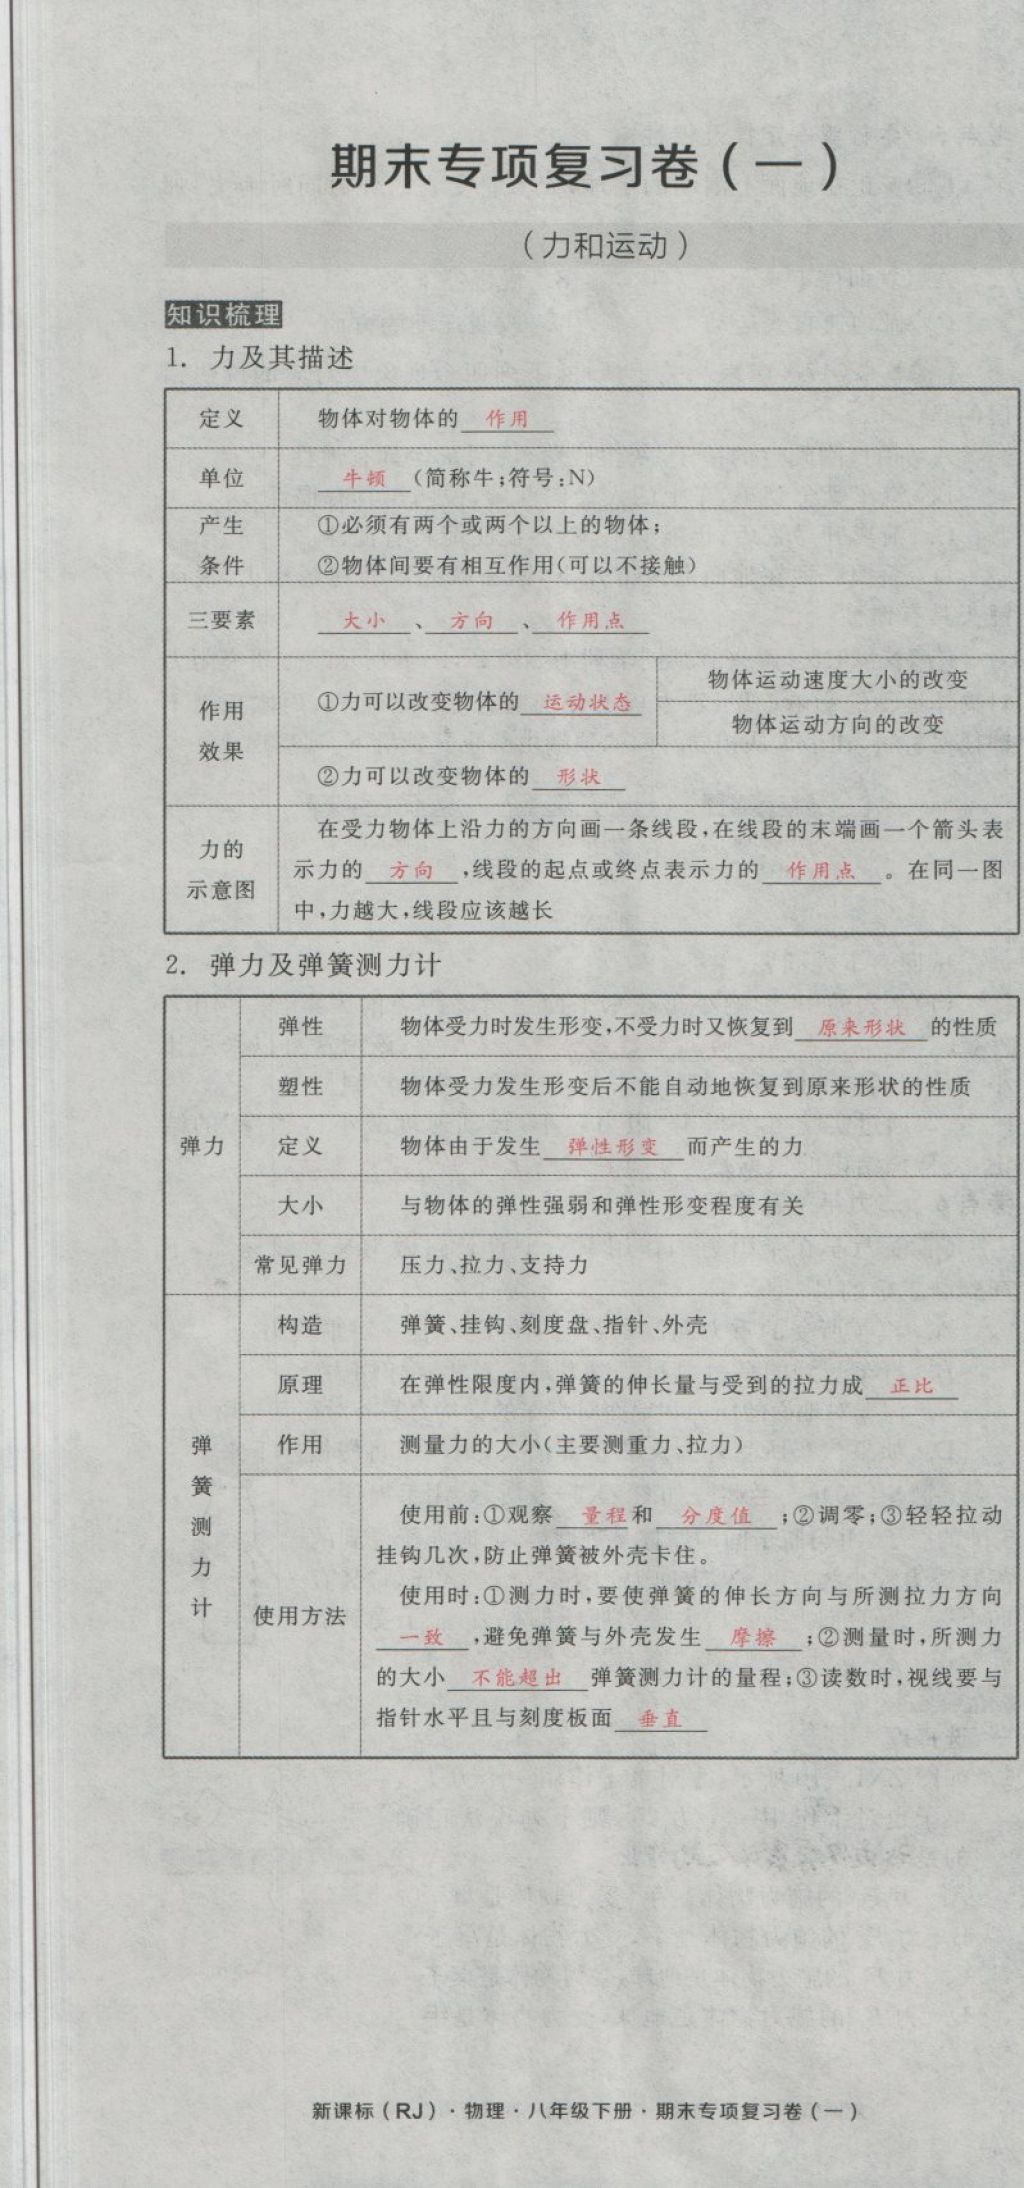 期末专项复习卷(一)
(力和运动)
知识梳理
1. 力及其描述
定义 物体对物体的 作用
单位 牛顿 (简称牛;符号:N)
产生条件 ①必须有两个或两个以上的物体;
②物体间要有相互作用(可以不接触)
三要素 大小 、 方向 、 作用点
作用效果 ①力可以改变物体的 运动状态
物体运动速度大小的改变
物体运动方向的改变
②力可以改变物体的 形状
力的示意图 在受力物体上沿力的方向画一条线段,在线段的末端画一个箭头表
示力的 方向 ,线段的起点或终点表示力的 作用点 。在同一图
中,力越大,线段应该越长
2. 弹力及弹簧测力计
弹力
弹性 物体受力时发生形变,不受力时又恢复到 原来形状 的性质
塑性 物体受力发生形变后不能自动地恢复到原来形状的性质
定义 物体由于发生 弹性形变 而产生的力
大小 与物体的弹性强弱和弹性形变程度有关
常见弹力 压力、拉力、支持力
弹簧测力计
构造 弹簧、挂钩、刻度盘、指针、外壳
原理 在弹性限度内,弹簧的伸长量与受到的拉力成 正比
作用 测量力的大小(主要测重力、拉力)
使用方法 使用前:①观察 量程 和 分度值 ;②调零;③轻轻拉动
挂钩几次,防止弹簧被外壳卡住。
使用时:①测力时,要使弹簧的伸长方向与所测拉力方向
一致 ,避免弹簧与外壳发生 摩擦 ;②测量时,所测力
的大小 不能超出 弹簧测力计的量程;③读数时,视线要与
指针水平且与刻度板面 垂直
新课标(RJ)·物理·八年级下册·期末专项复习卷(一)